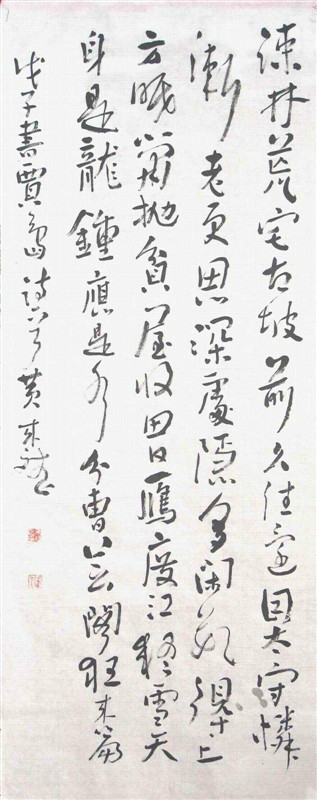 疎林荒宅古坡前久住還因太守憐
漸老更思深處隱多閑數得上
方眠鼠拋貧屋收田日鴈度江擬雪天
身是龍鍾應是分水曹芸閣枉來篇
戊子書賈島詩一首黃來